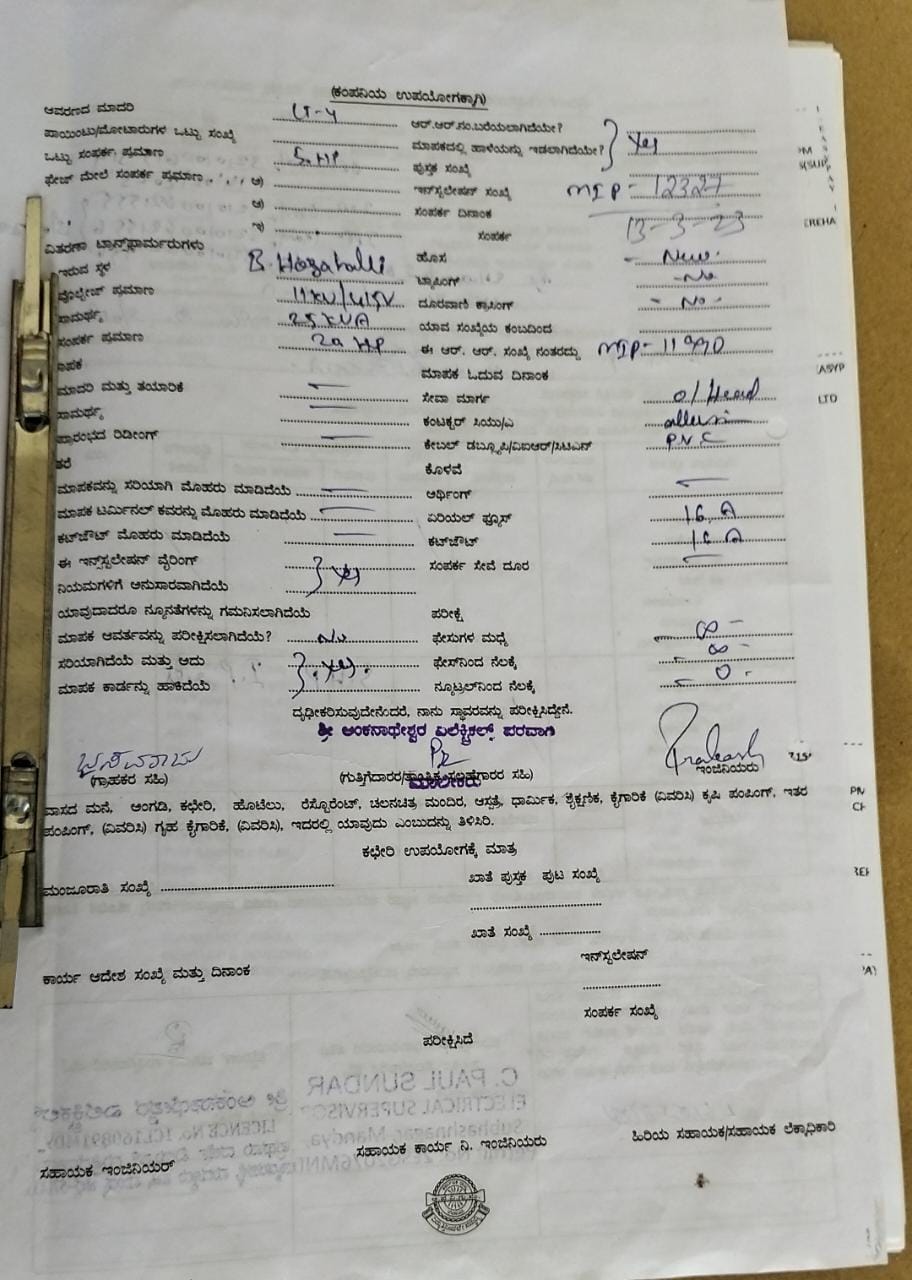 (ಕಂಪನಿಯ ಉಪಯೋಗಕ್ಕಾಗಿ)
ಆವರಣದ ಮಾದರಿ LT-4 ಆರ್.ಆರ್.ನಂ.ಬರೆಯಲಾಗಿದೆಯೇ?
ಪಾಯಿಂಟು/ಮೋಟಾರುಗಳ ಒಟ್ಟು ಸಂಖ್ಯೆ ಮಾಪಕದಲ್ಲಿ ಹಾಳೆಯನ್ನು ಇಡಲಾಗಿದೆಯೇ? } Yes
ಒಟ್ಟು ಸಂಪರ್ಕ ಪ್ರಮಾಣ 5 HP ಪುಸ್ತಕ ಸಂಖ್ಯೆ
ಫೇಜ್ ಮೇಲೆ ಸಂಪರ್ಕ ಪ್ರಮಾಣ ಅ) ಇನ್‌ಸ್ಟಲೇಷನ್ ಸಂಖ್ಯೆ MIP-12327
ಆ) ಸಂಪರ್ಕ ದಿನಾಂಕ 13-3-23
ಇ) ಸಂಪರ್ಕ
ವಿತರಣಾ ಟ್ರಾನ್ಸ್‌ಫಾರ್ಮರುಗಳು
ಇರುವ ಸ್ಥಳ B. Hosahalli ಹೊಸ - New -
ವೋಲ್ಟೇಜ್ ಪ್ರಮಾಣ 11 KV/415V ಟ್ಯಾಪಿಂಗ್ - No
ಸಾಮರ್ಥ್ಯ 25 KVA ದೂರವಾಣಿ ಕ್ರಾಸಿಂಗ್ - No -
ಸಂಪರ್ಕ ಪ್ರಮಾಣ 20 HP ಯಾವ ಸಂಖ್ಯೆಯ ಕಂಬದಿಂದ
ಮಾಪಕ ಈ ಆರ್. ಆರ್. ಸಂಖ್ಯೆ ನಂತರದ್ದು
ಮಾಪಕ ಓದುವ ದಿನಾಂಕ
ಮಾದರಿ ಮತ್ತು ತಯಾರಿಕೆ — ಸೇವಾ ಮಾರ್ಗ o/Head
ಸಾಮರ್ಥ್ಯ — ಕಂಟಕ್ಟರ್ ಸಿಯು/ಎ
ಪ್ರಾರಂಭದ ರಿಡೀಂಗ್ — ಕೇಬಲ್ ಡಬ್ಲ್ಯೂಪಿ/ಐಐಆರ್/ಸಿಟಿಎಸ್ P.V.C
ತರೆ ಕೊಳವೆ
ಮಾಪಕವನ್ನು ಸರಿಯಾಗಿ ಮೊಹರು ಮಾಡಿದೆಯೆ — ಆರ್ಥಿಂಗ್ —
ಮಾಪಕ ಟರ್ಮಿನಲ್ ಕವರನ್ನು ಮೊಹರು ಮಾಡಿದೆಯೆ — ಏರಿಯಲ್ ಫ್ಯೂಸ್ 16 A
ಕಟ್‌ಔಟ್ ಮೊಹರು ಮಾಡಿದೆಯೆ — ಕಟ್‌ಔಟ್ 16 A
ಈ ಇನ್‌ಸ್ಟಲೇಷನ್ ವೈರಿಂಗ್ ಸಂಪರ್ಕ ಸೇವೆ ದೂರ —
ನಿಯಮಗಳಿಗೆ ಅನುಸಾರವಾಗಿದೆಯೆ } Yes
ಯಾವುದಾದರೂ ನ್ಯೂನತೆಗಳನ್ನು ಗಮನಿಸಲಾಗಿದೆಯೆ ಪರೀಕ್ಷೆ
ಮಾಪಕ ಆವರ್ತವನ್ನು ಪರೀಕ್ಷಿಸಲಾಗಿದೆಯೆ? No ಫೇಸುಗಳ ಮಧ್ಯೆ ∞ -
ಸರಿಯಾಗಿದೆಯೆ ಮತ್ತು ಅದು ಫೇಸ್‌ನಿಂದ ನೆಲಕ್ಕೆ ∞ -
ಮಾಪಕ ಕಾರ್ಡನ್ನು ಹಾಕಿದೆಯೆ } Yes. ನ್ಯೂಟ್ರಲ್‌ನಿಂದ ನೆಲಕ್ಕೆ - 0 -
ದೃಢೀಕರಿಸುವುದೇನೆಂದರೆ, ನಾನು ಸ್ಥಾವರವನ್ನು ಪರೀಕ್ಷಿಸಿದ್ದೇನೆ.
ಶ್ರೀ ಅಂಕನಾಥೇಶ್ವರ ಎಲೆಕ್ಟ್ರಿಕಲ್ಸ್ ಪರವಾಗಿ
ಬಸವರಾಜು Prakash
(ಗ್ರಾಹಕರ ಸಹಿ) (ಗುತ್ತಿಗೆದಾರರ/ತಾಂತ್ರಿಕ ಸಲಹೆಗಾರರ ಸಹಿ) ಇಂಜಿನಿಯರು
ಮಾಲೀಕರು
ವಾಸದ ಮನೆ, ಅಂಗಡಿ, ಕಛೇರಿ, ಹೊಟೆಲು, ರೆಸ್ಟೋರೆಂಟ್, ಚಲನಚಿತ್ರ ಮಂದಿರ, ಆಸ್ಪತ್ರೆ, ಧಾರ್ಮಿಕ, ಶೈಕ್ಷಣಿಕ, ಕೈಗಾರಿಕೆ (ವಿವರಿಸಿ) ಕೃಷಿ ಪಂಪಿಂಗ್, ಇತರ
ಪಂಪಿಂಗ್, (ವಿವರಿಸಿ) ಗೃಹ ಕೈಗಾರಿಕೆ, (ವಿವರಿಸಿ), ಇದರಲ್ಲಿ ಯಾವುದು ಎಂಬುದನ್ನು ತಿಳಿಸಿರಿ.
ಕಛೇರಿ ಉಪಯೋಗಕ್ಕೆ ಮಾತ್ರ
ಮಂಜೂರಾತಿ ಸಂಖ್ಯೆ ಖಾತೆ ಪುಸ್ತಕ ಪುಟ ಸಂಖ್ಯೆ
ಖಾತೆ ಸಂಖ್ಯೆ
ಕಾರ್ಯ ಆದೇಶ ಸಂಖ್ಯೆ ಮತ್ತು ದಿನಾಂಕ ಇನ್‌ಸ್ಟಲೇಷನ್
ಸಂಪರ್ಕ ಸಂಖ್ಯೆ
ಪರೀಕ್ಷಿಸಿದೆ
ಸಹಾಯಕ ಇಂಜಿನಿಯರ್ ಸಹಾಯಕ ಕಾರ್ಯ ನಿ. ಇಂಜಿನಿಯರು ಹಿರಿಯ ಸಹಾಯಕ/ಸಹಾಯಕ ಲೆಕ್ಕಾಧಿಕಾರಿ